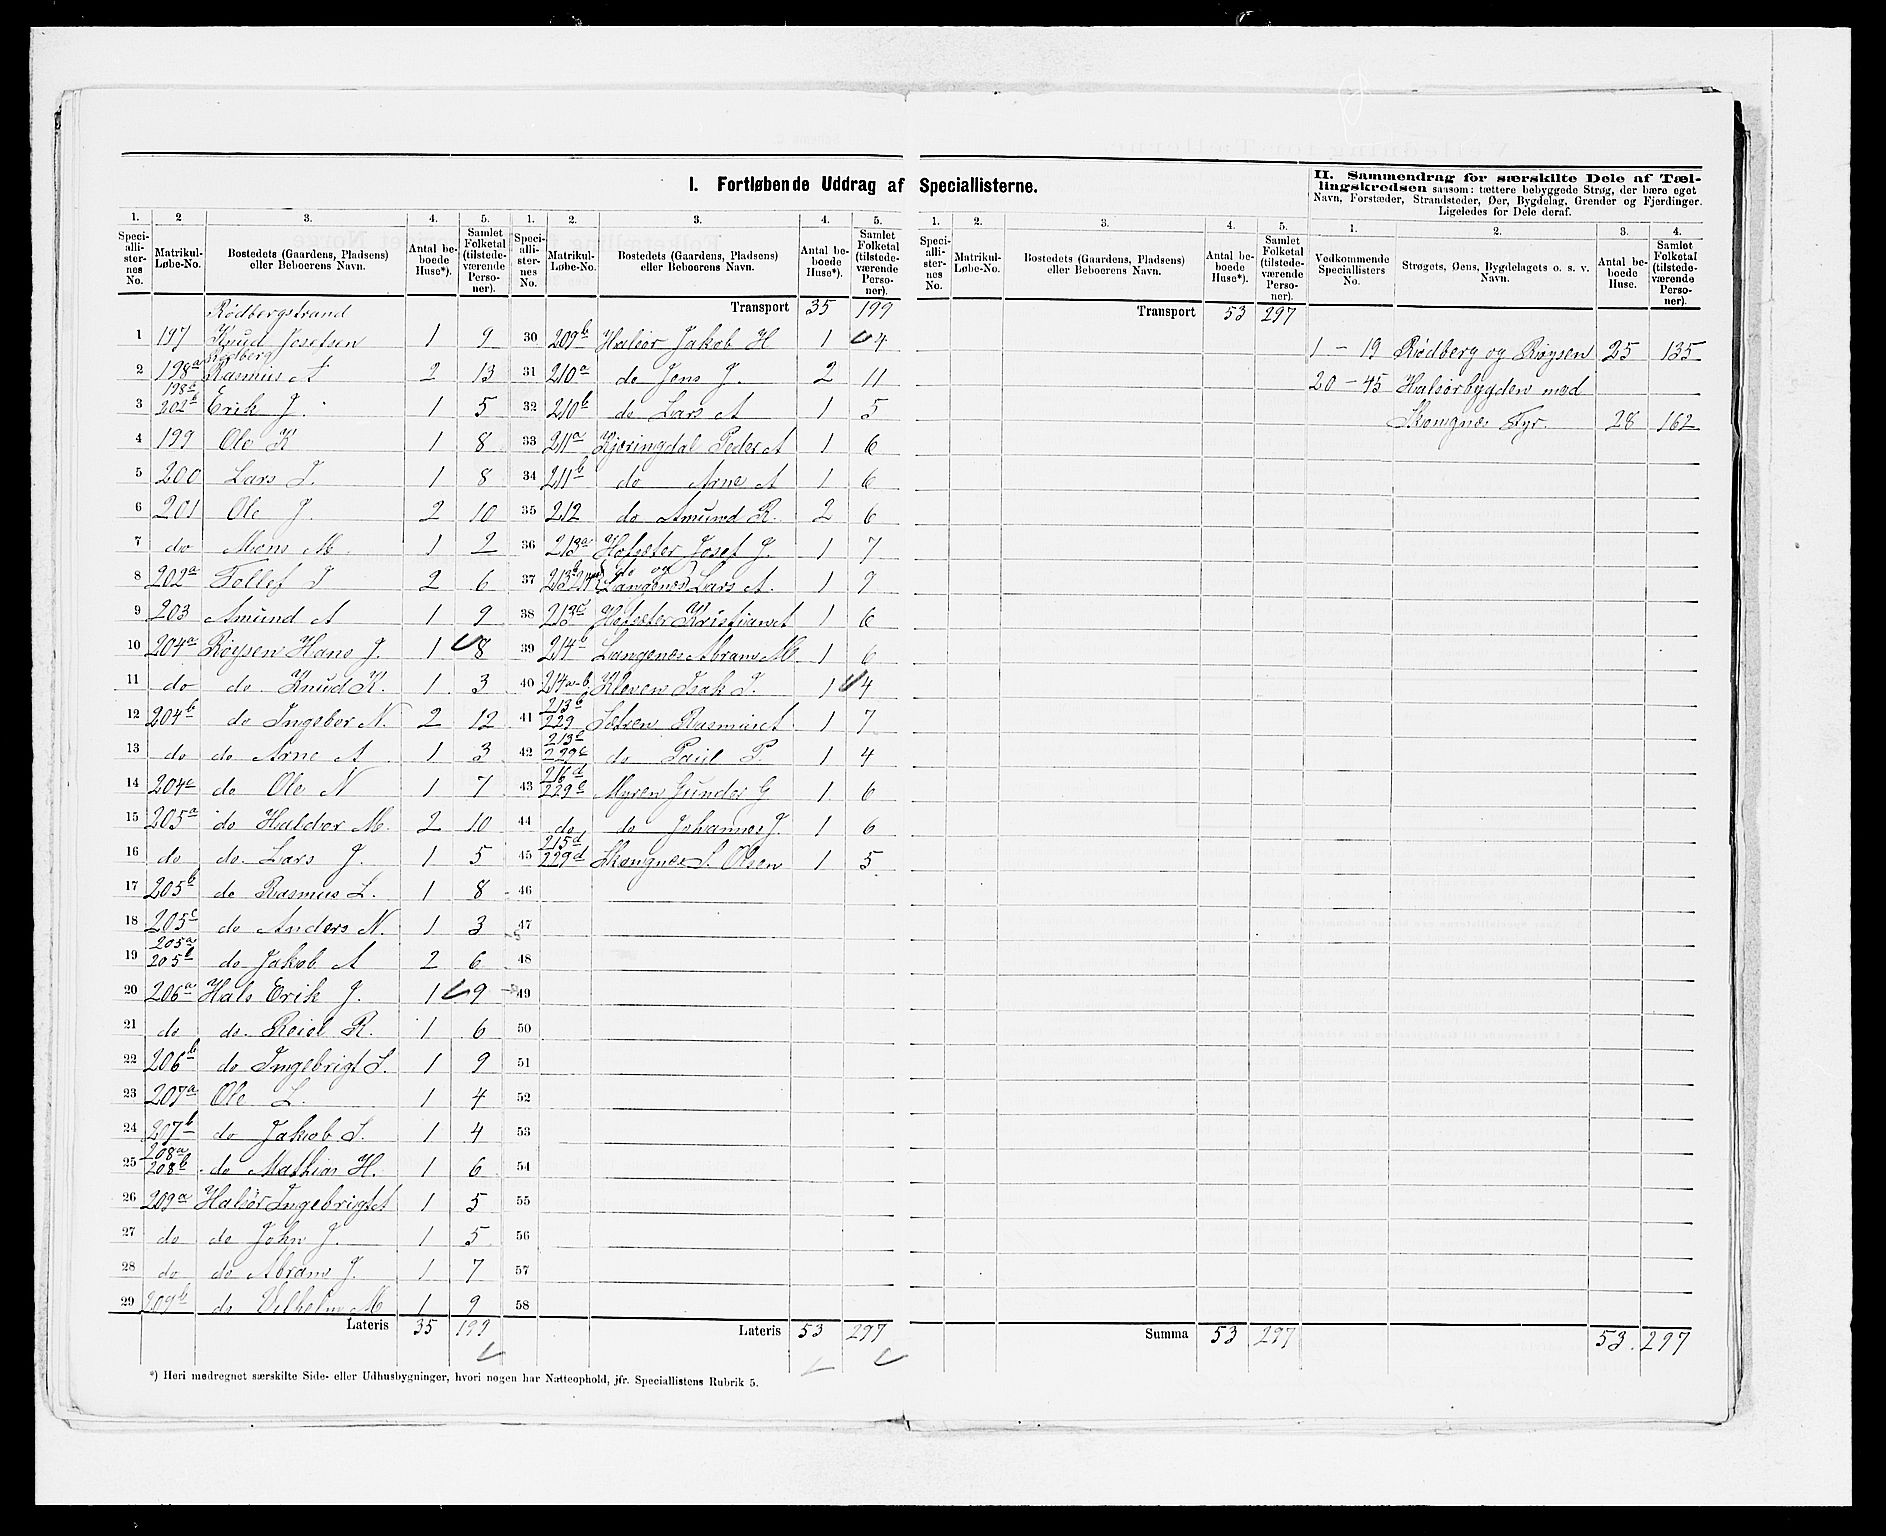 I. Fortløbende Uddrag af Speciallisterne.
II. Sammendrag for særskilte Dele af Tællingskredsen saasom: tættere bebyggede Strøg, der bære eget Navn, Forstæder, Strandsteder, Øer, Bygdelag, Grender og Fjerdinger. Ligeledes for Dele deraf.
1. 2 3. 4. 5. 1. 2. 3. 4. 5. 1. 2. 3. 4. 5. 1. 2. 3. 4.
Speciallisternes No. Matrikul-Løbe-No. Bostedets (Gaardens, Pladsens) eller Beboerens Navn. Antal beboede Huse*). Samlet Folketal (tilstedeværende Personer).
Speciallisternes No. Matrikul-Løbe-No. Bostedets (Gaardens, Pladsens) eller Beboerens Navn. Antal beboede Huse*). Samlet Folketal (tilstedeværende Personer).
Speciallisternes No. Matrikul-Løbe-No. Bostedets (Gaardens, Pladsens) eller Beboerens Navn. Antal beboede Huse*). Samlet Folketal (tilstedeværende Personer).
Vedkommende Speciallisters No. Strøgets, Øens, Bygdelagets o. s. v. Navn. Antal beboede Huse. Samlet Folketal (tilstedeværende Personer).
Rødbergstrand
1 197 Knud Josefsen 1 9
Rødberg
2 198a Rasmus A 2 13
3 198b 202b Erik J. 1 5
4 199 Ole K 1 8
5 200 Lars I. 1 8
6 201 Ole J. 2 10
7 do Mons M. 1 2
8 202a Tollef I 2 6
9 203 Amund A 1 9
10 204a Røysen Hans J. 1 8
11 do do Knud K. 1 3
12 204b do Ingebor N. 2 12
13 do do Arne A 1 3
14 204c do Ole N 1 7
15 205a do Haldor M. 2 10
16 do do Lars J. 1 5
17 205b do Rasmus L. 1 8
18 205c do Anders N. 1 3
19 205a 205b do Jakob A 2 6
20 206a Hals Erik J. 1 9
21 do do Reiel R. 1 6
22 206b do Ingebrigt I. 1 9
23 207a Ole L. 1 4
24 207b do Jakob I. 1 4
25 208a 208b do Mathias H. 1 6
26 209a Halsør Ingebrigt A 1 5
27 do do John J. 1 5
28 do do Abram J. 1 7
29 209b do Vilhelm M 1 9
Lateris 35 199
Transport 35 199
30 209b Halsør Jakob H 1 4
31 210a do Jens J. 2 11
32 210b do Lars A 1 5
33 211a Kjæringdal Peder A 1 6
34 211b do Arne A 1 6
35 212 do Amund R. 2 6
36 213a Hofsæter Josef J. 1 7
37 213b do og Langenes Lars A. 1 9
38 213c Hofsæter Kristian A 1 6
39 214b Langenes Abram M 1 6
40 214a-b Kleven Isak I. 1 4
41 213b 229 Sætren Rasmus A. 1 7
42 213c 229c do Paul P. 1 4
43 216d 229e Myren Gunder G 1 6
44 do do Johannes J. 1 6
45 215d 229d Skongnes S. Olsen 1 5
46
47
48
49
50
51
52
53
54
55
56
57
58
Lateris 53 297
Transport 53 297
Summa 53 297
1 - 19 Rødberg og Røysen 25 135
20 - 45 Halsørbygden med
Skongnes Fyr. 28 162
53 297
*) Heri medregnet særskilte Side- eller Udhusbygninger, hvori nogen har Natteophold, jfr. Speciallistens Rubrik 5.